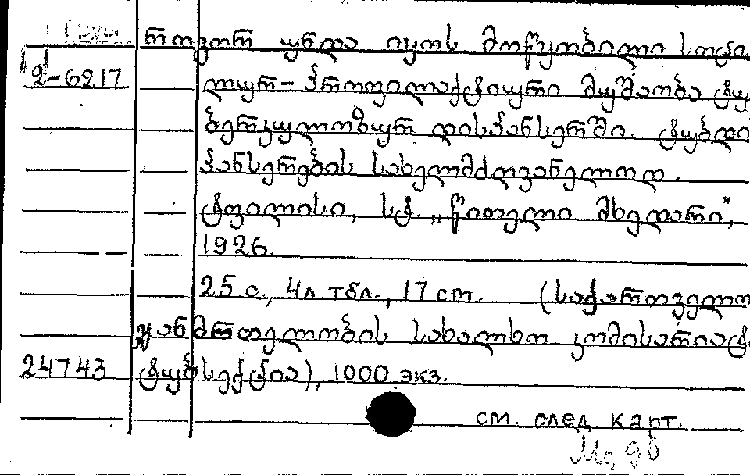 როგორ უნდა იყოს მოწყობილი სოცია
2-6217 ლურ-პროფილაქტიური მუშაობა ტუ
ბერკულოზურ დისპანსერში. ტუბდი
პანსერების სახელმძღვანელოდ.
ტფილისი, სტ. „წითელი მხედარი",
1926.
25 с., 4л тбл., 17 см. (საქართველო
ჯანმრთელობის სახალხო კომისარიატ
24743 ტუბსექცია), 1000 экз.
см. след. карт.